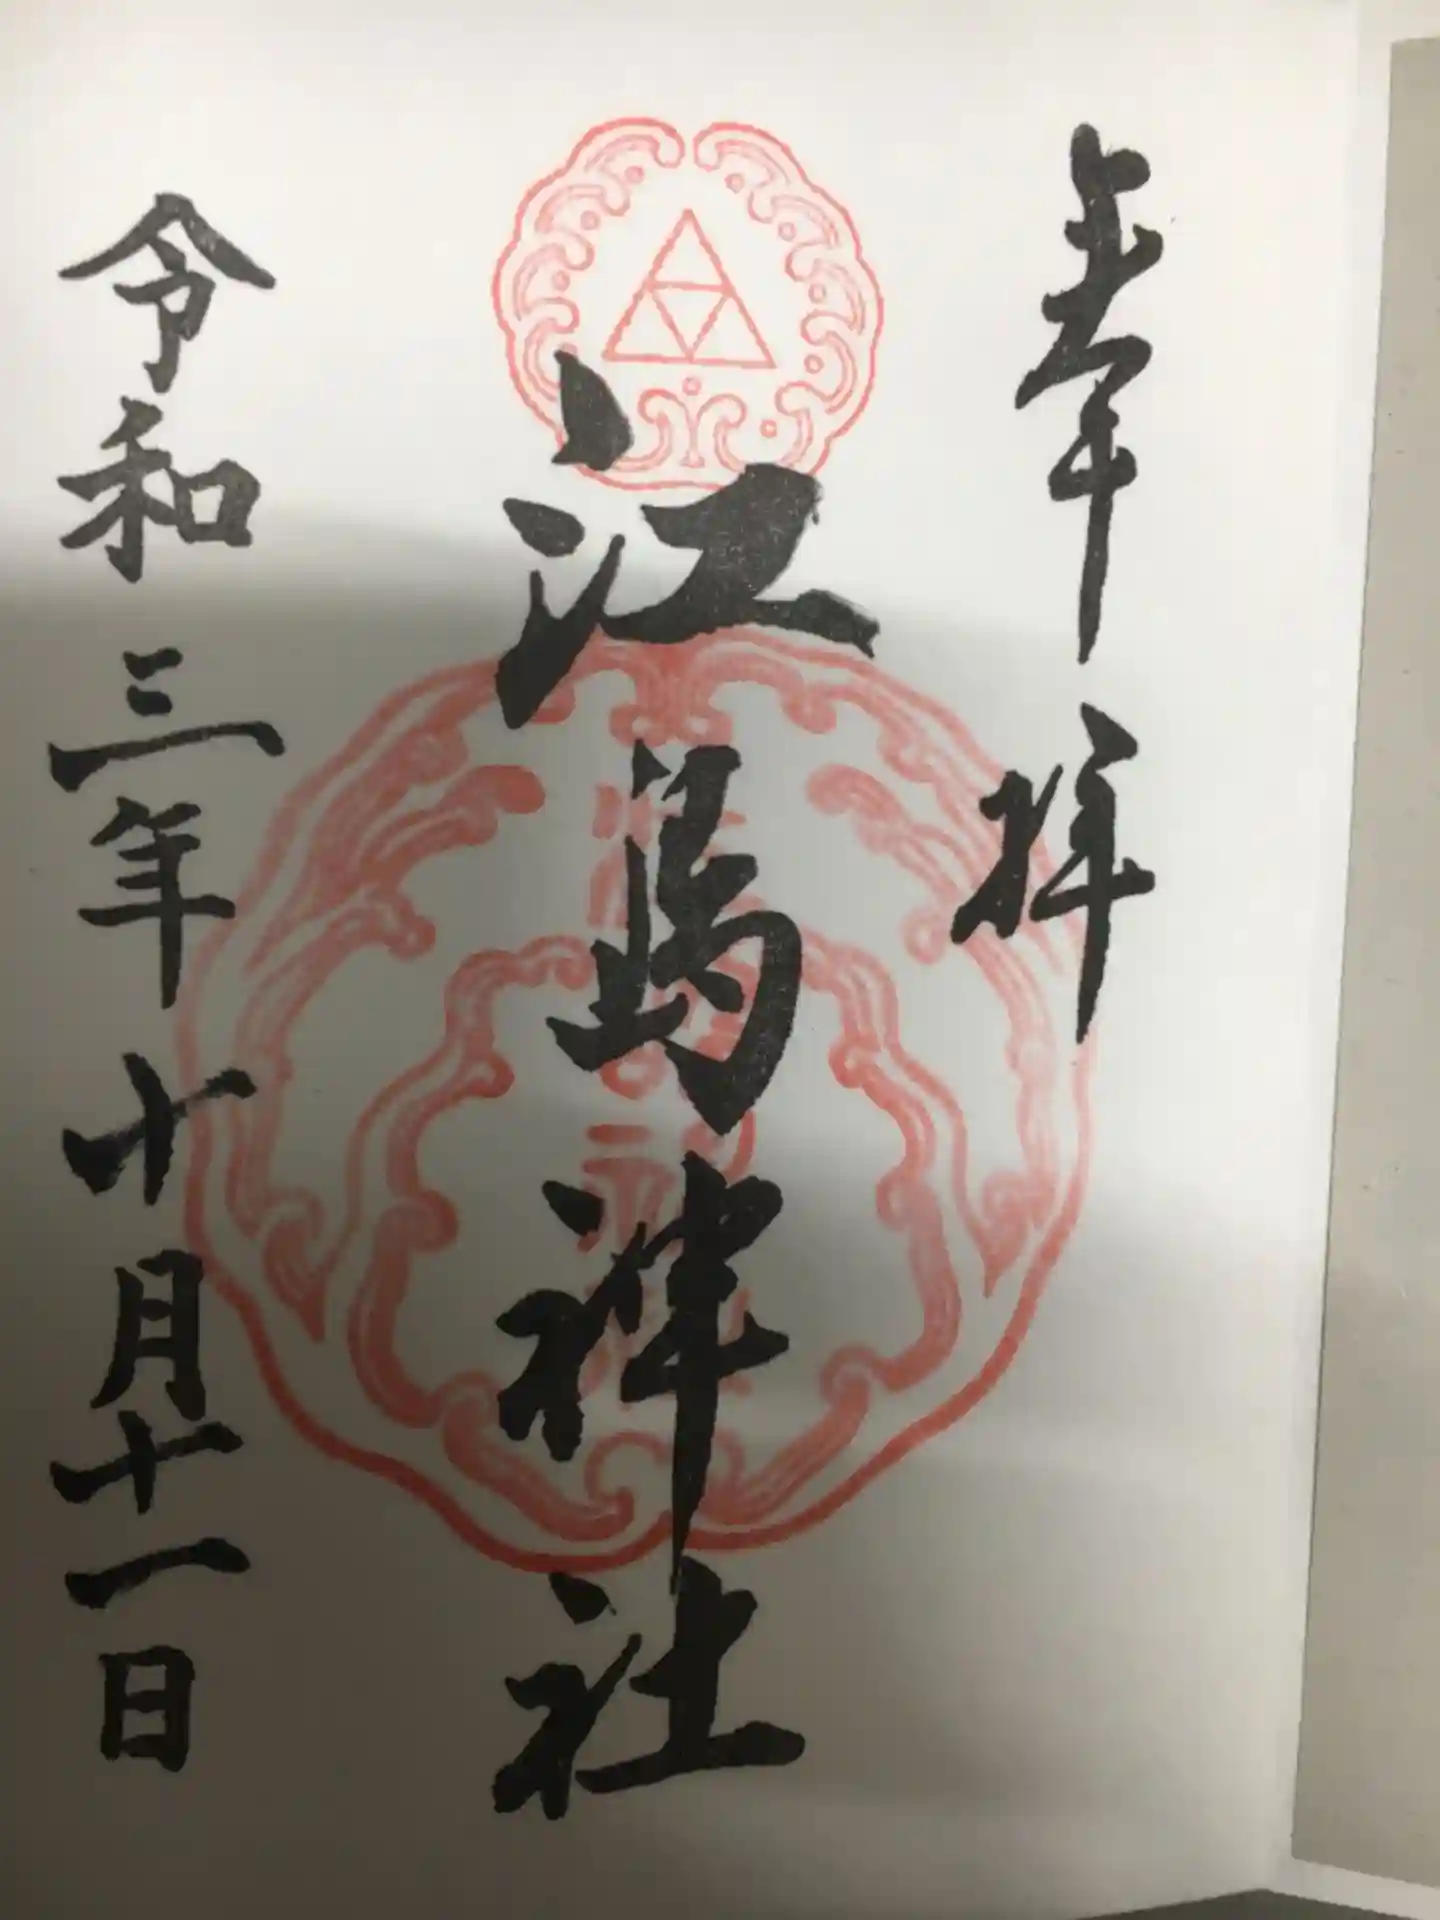 奉拝
江島神社
令和三年十月十一日